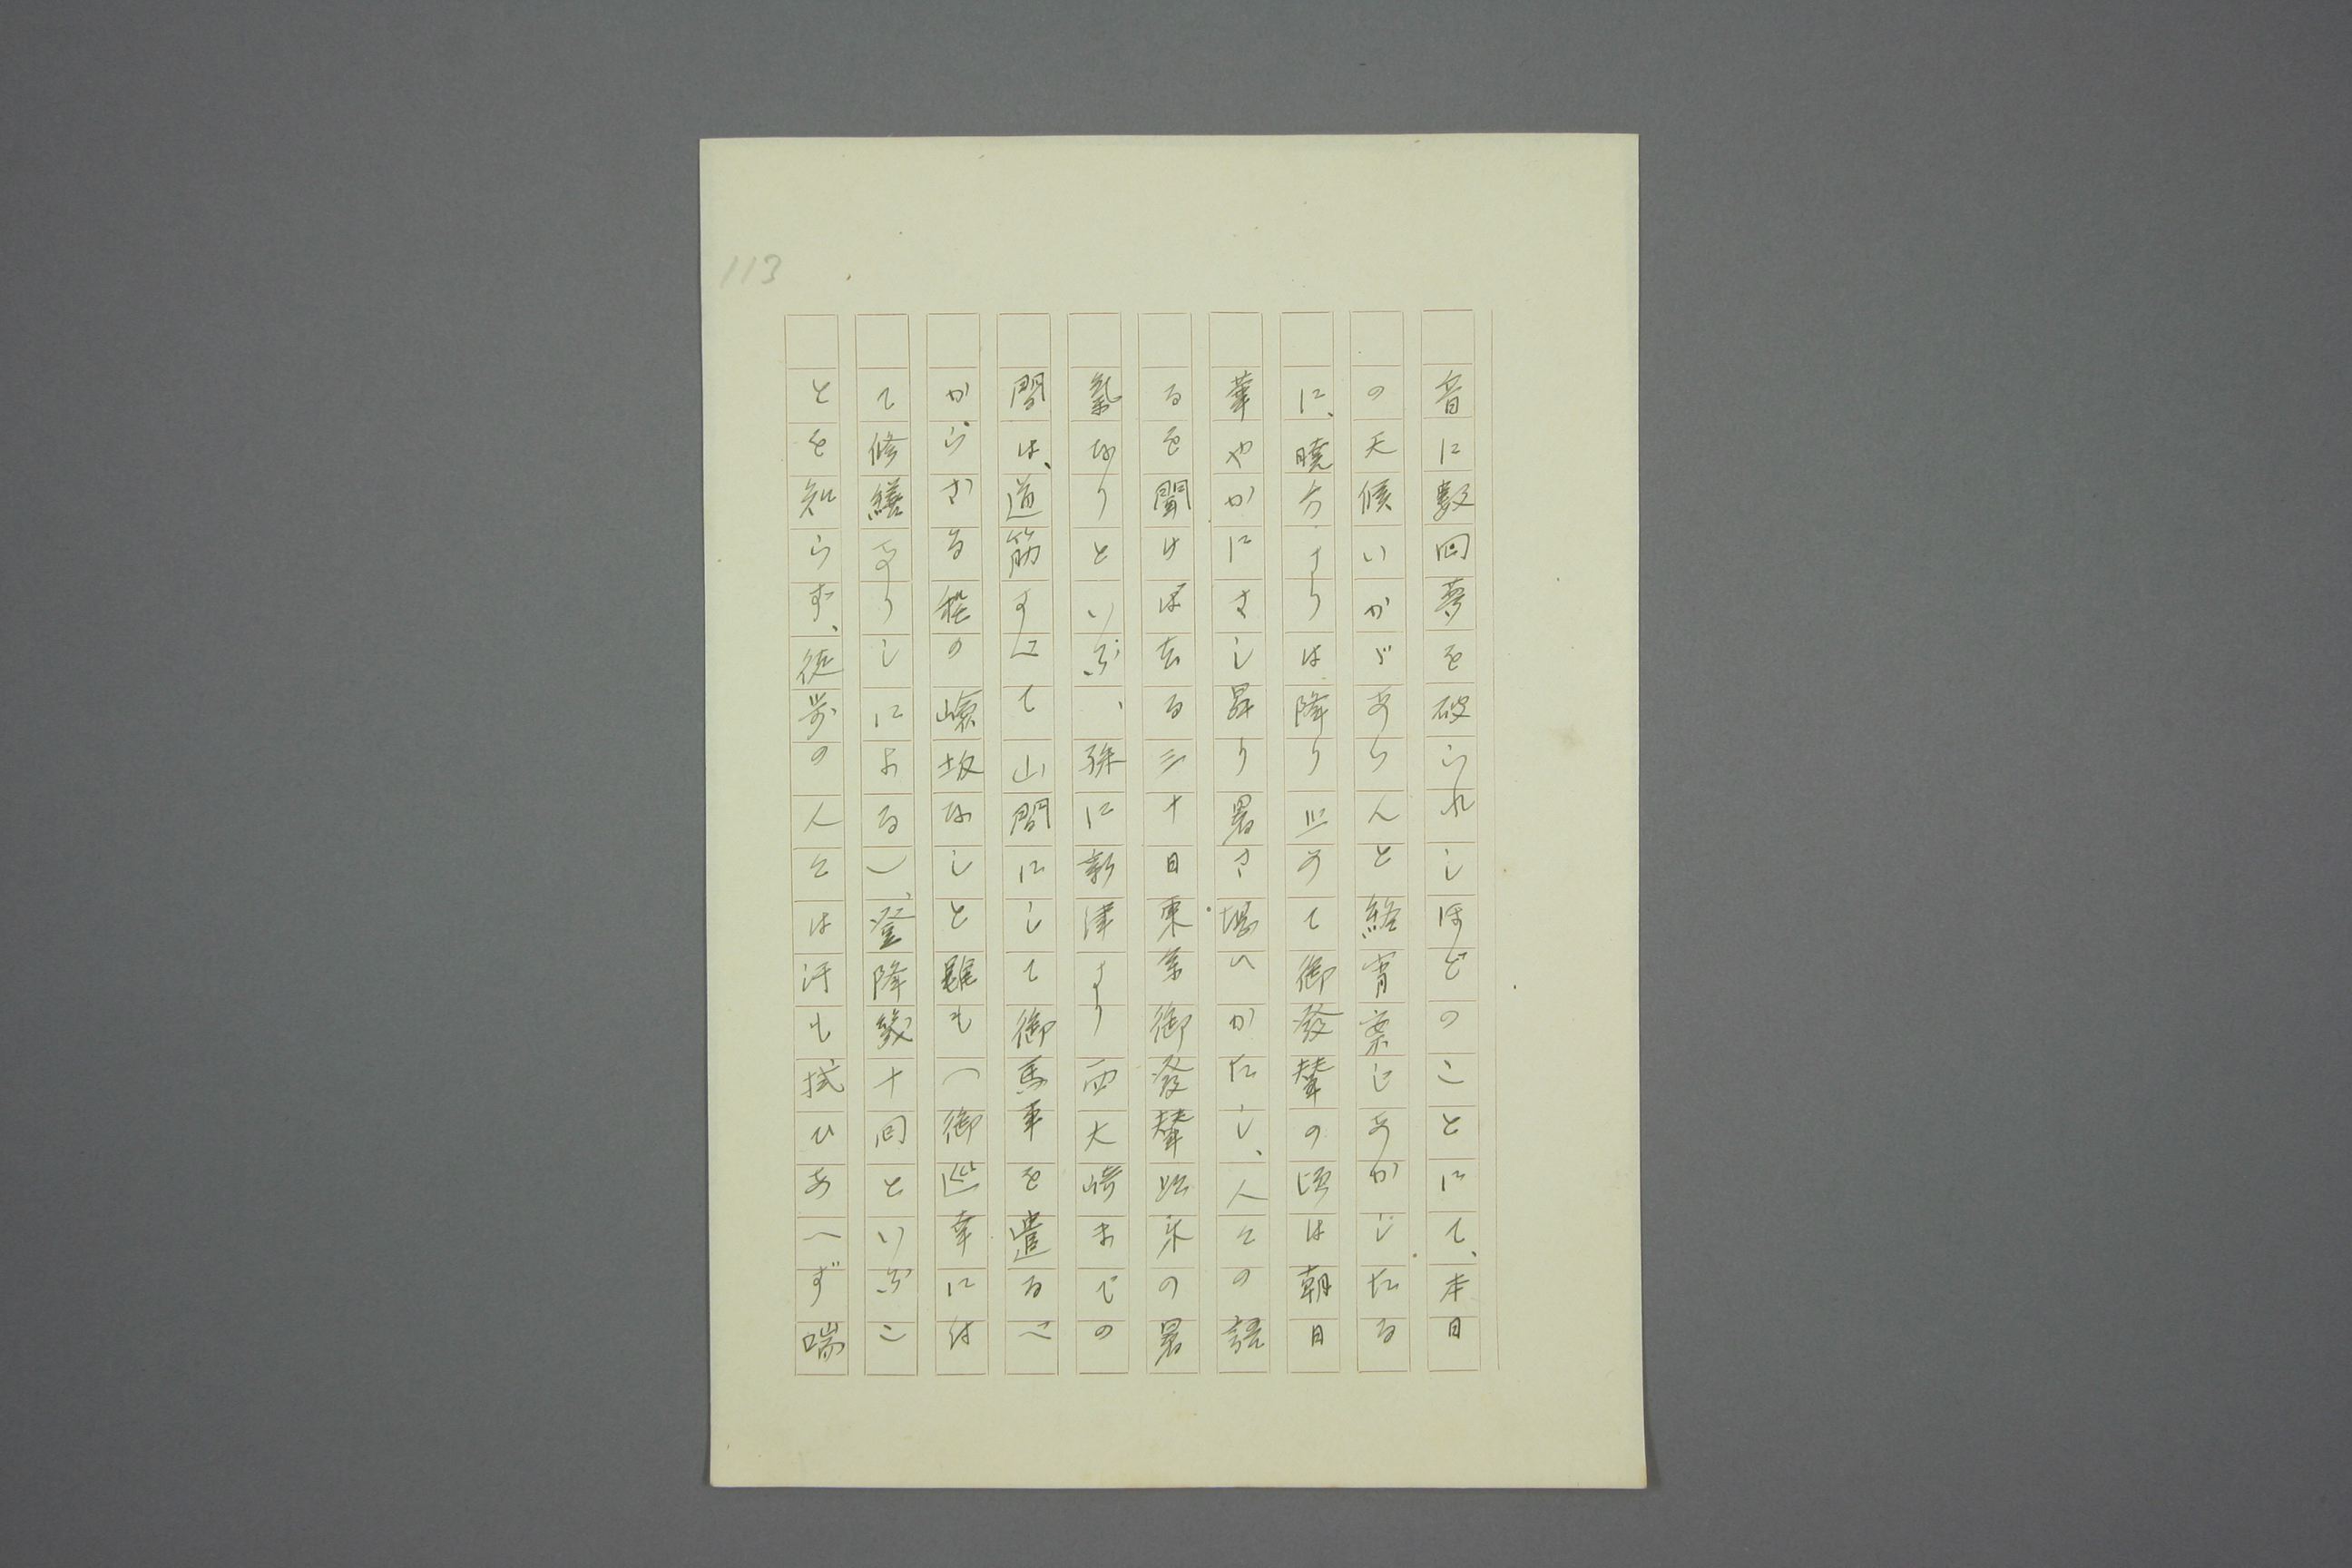 113
音に數回夢を破られしほどのことにて、本日
の天候いかゞあらんと終宵案じあかしたる
に、曉方よりは降り止みて御發輦の頃は朝日
華やかにさし昇り暑さ堪へかたし、人々の語
るを聞けば去る三十日東京御發輦以来の暑
氣なりといふ、殊に新津より西大崎までの
間は、道筋すべて山間にして御馬車を遣るべ
からざる程の嶮坂なしと雖も（御巡幸に付
て修繕なりしによる）、登降幾十回といふこ
とを知らず、徒歩の人々は汗も拭ひあへず喘